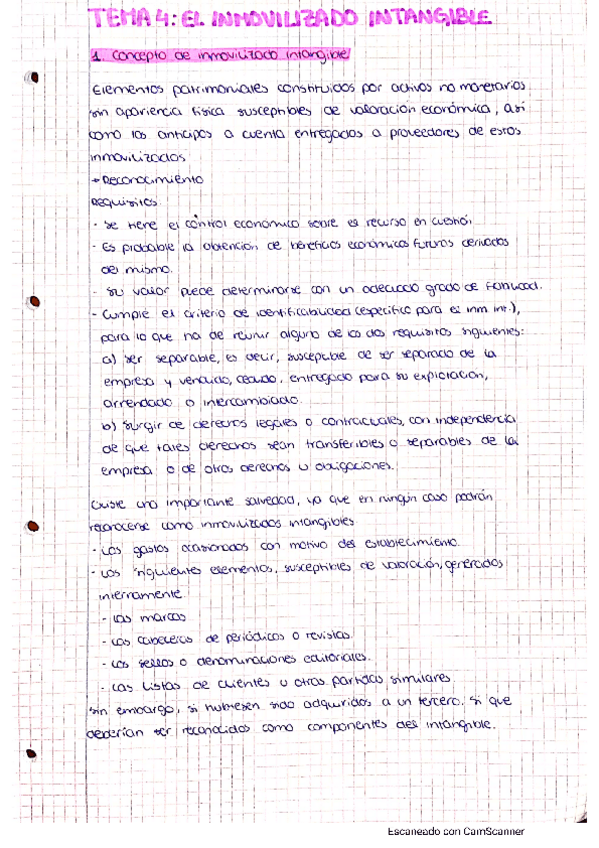 TEMA 4: EL INMOVILIZADO INTANGIBLE
1. Concepto de inmovilizado intangible
Elementos patrimoniales constituidos por activos no monetarios
sin apariencia física susceptibles de valoración económica, así
como los anticipos a cuenta entregados a proveedores de estos
inmovilizados
→ Reconocimiento
Requisitos:
· Se tiene el control económico sobre el recurso en cuestión.
· Es probable la obtención de beneficios económicos futuros derivados
del mismo.
· Su valor puede determinarse con un adecuado grado de fiabilidad.
· Cumple el criterio de identificabilidad (específico para el inm. int.),
para lo que ha de reunir alguno de los dos requisitos siguientes:
a) Ser separable, es decir, susceptible de ser separado de la
empresa y vendido, cedido, entregado para su explotación,
arrendado o intercambiado.
b) Surgir de derechos legales o contractuales, con independencia
de que tales derechos sean transferibles o separables de la
empresa o de otros derechos u obligaciones.
Existe una importante salvedad, ya que en ningún caso podrán
reconocerse como inmovilizados intangibles
· Los gastos ocasionados con motivo del establecimiento.
· Los siguientes elementos, susceptibles de valoración, generados
internamente.
· Las marcas
· Las cabeceras de periódicos o revistas.
· Los sellos o denominaciones editoriales.
· Las listas de clientes u otras partidas similares
Sin embargo, si hubiesen sido adquiridos a un tercero, si que
deberían ser reconocidos como componentes del intangible.
Escaneado con CamScanner